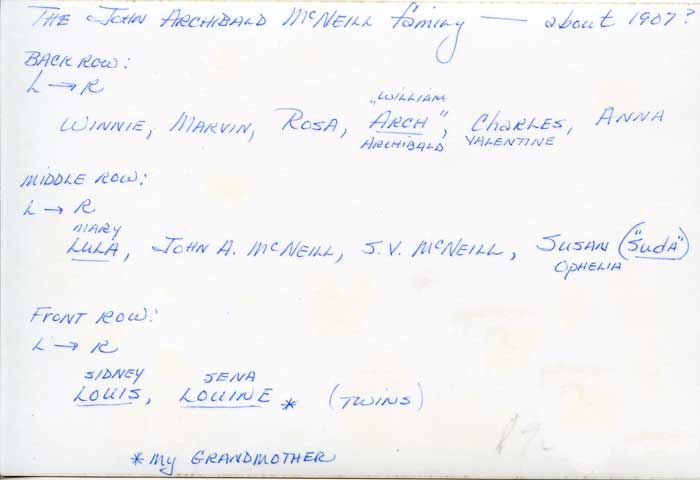 The John Archibald McNeill family — about 1907?
Back Row:
L → R
"William
Winnie, Marvin, Rosa, Arch", Charles, Anna
Archibald Valentine
Middle Row:
L → R
Mary
Lula, John A. McNeill, S.V. McNeill, Susan ("Suda")
Ophelia
Front Row:
L → R
Sidney Sena
Louis, Louine * (Twins)
* My Grandmother